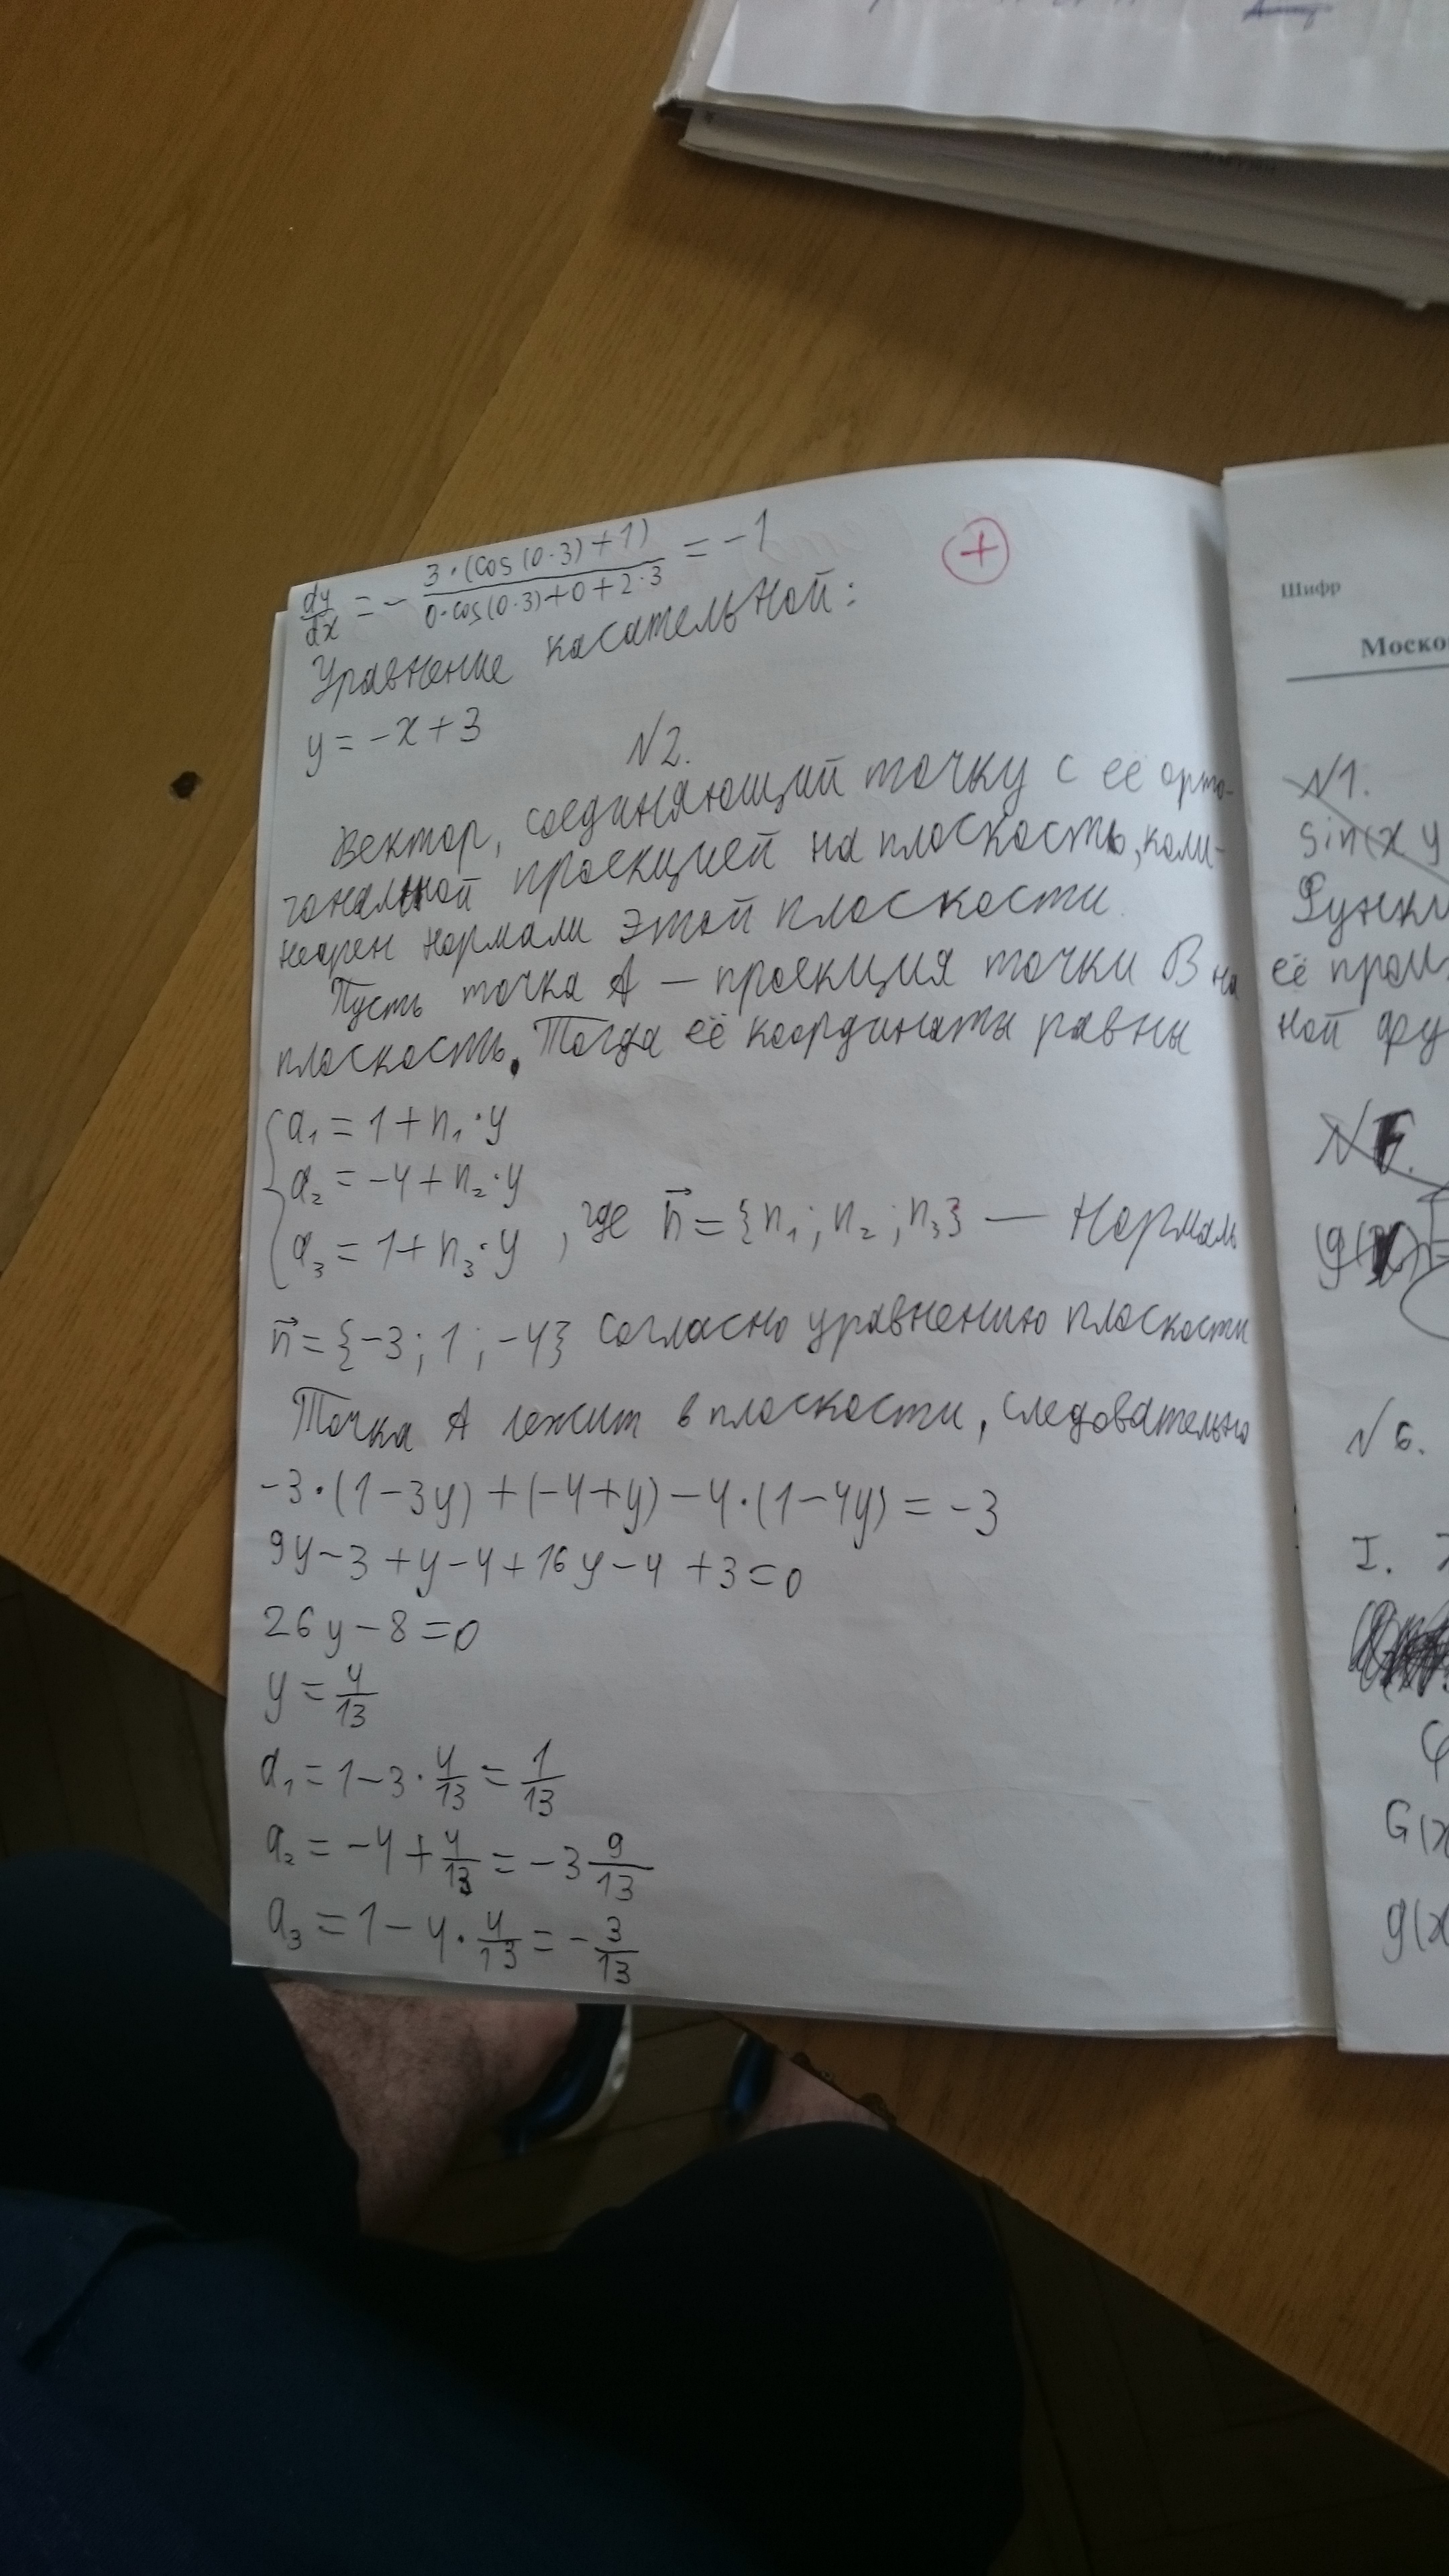 dy/dx = - 3·(cos(0·3)+1) / 0·cos(0·3)+0+2·3 = -1
+
Уравнение касательной:
y = -x+3
N2.
Вектор, соединяющий точку с её орто-
гональной проекцией на плоскость, коли-
неарен нормали этой плоскости.
Пусть точка A — проекция точки B на
плоскость. Тогда её координаты равны
a₁ = 1+n₁·y
a₂ = -4+n₂·y
a₃ = 1+n₃·y , где n⃗ = {n₁; n₂; n₃} — нормаль
n⃗ = {-3; 1; -4} согласно уравнению плоскости
Точка A лежит в плоскости, следовательно
-3·(1-3y)+(-4+y)-4·(1-4y) = -3
9y-3+y-4+16y-4+3=0
26y-8=0
y = 4/13
a₁ = 1-3·4/13 = 1/13
a₂ = -4+4/13 = -3 9/13
a₃ = 1-4·4/13 = -3/13
Шифр
Моско
N1.
sin(xy
Функ
её прои
ной фу
N6.
I.
G(x
g(x